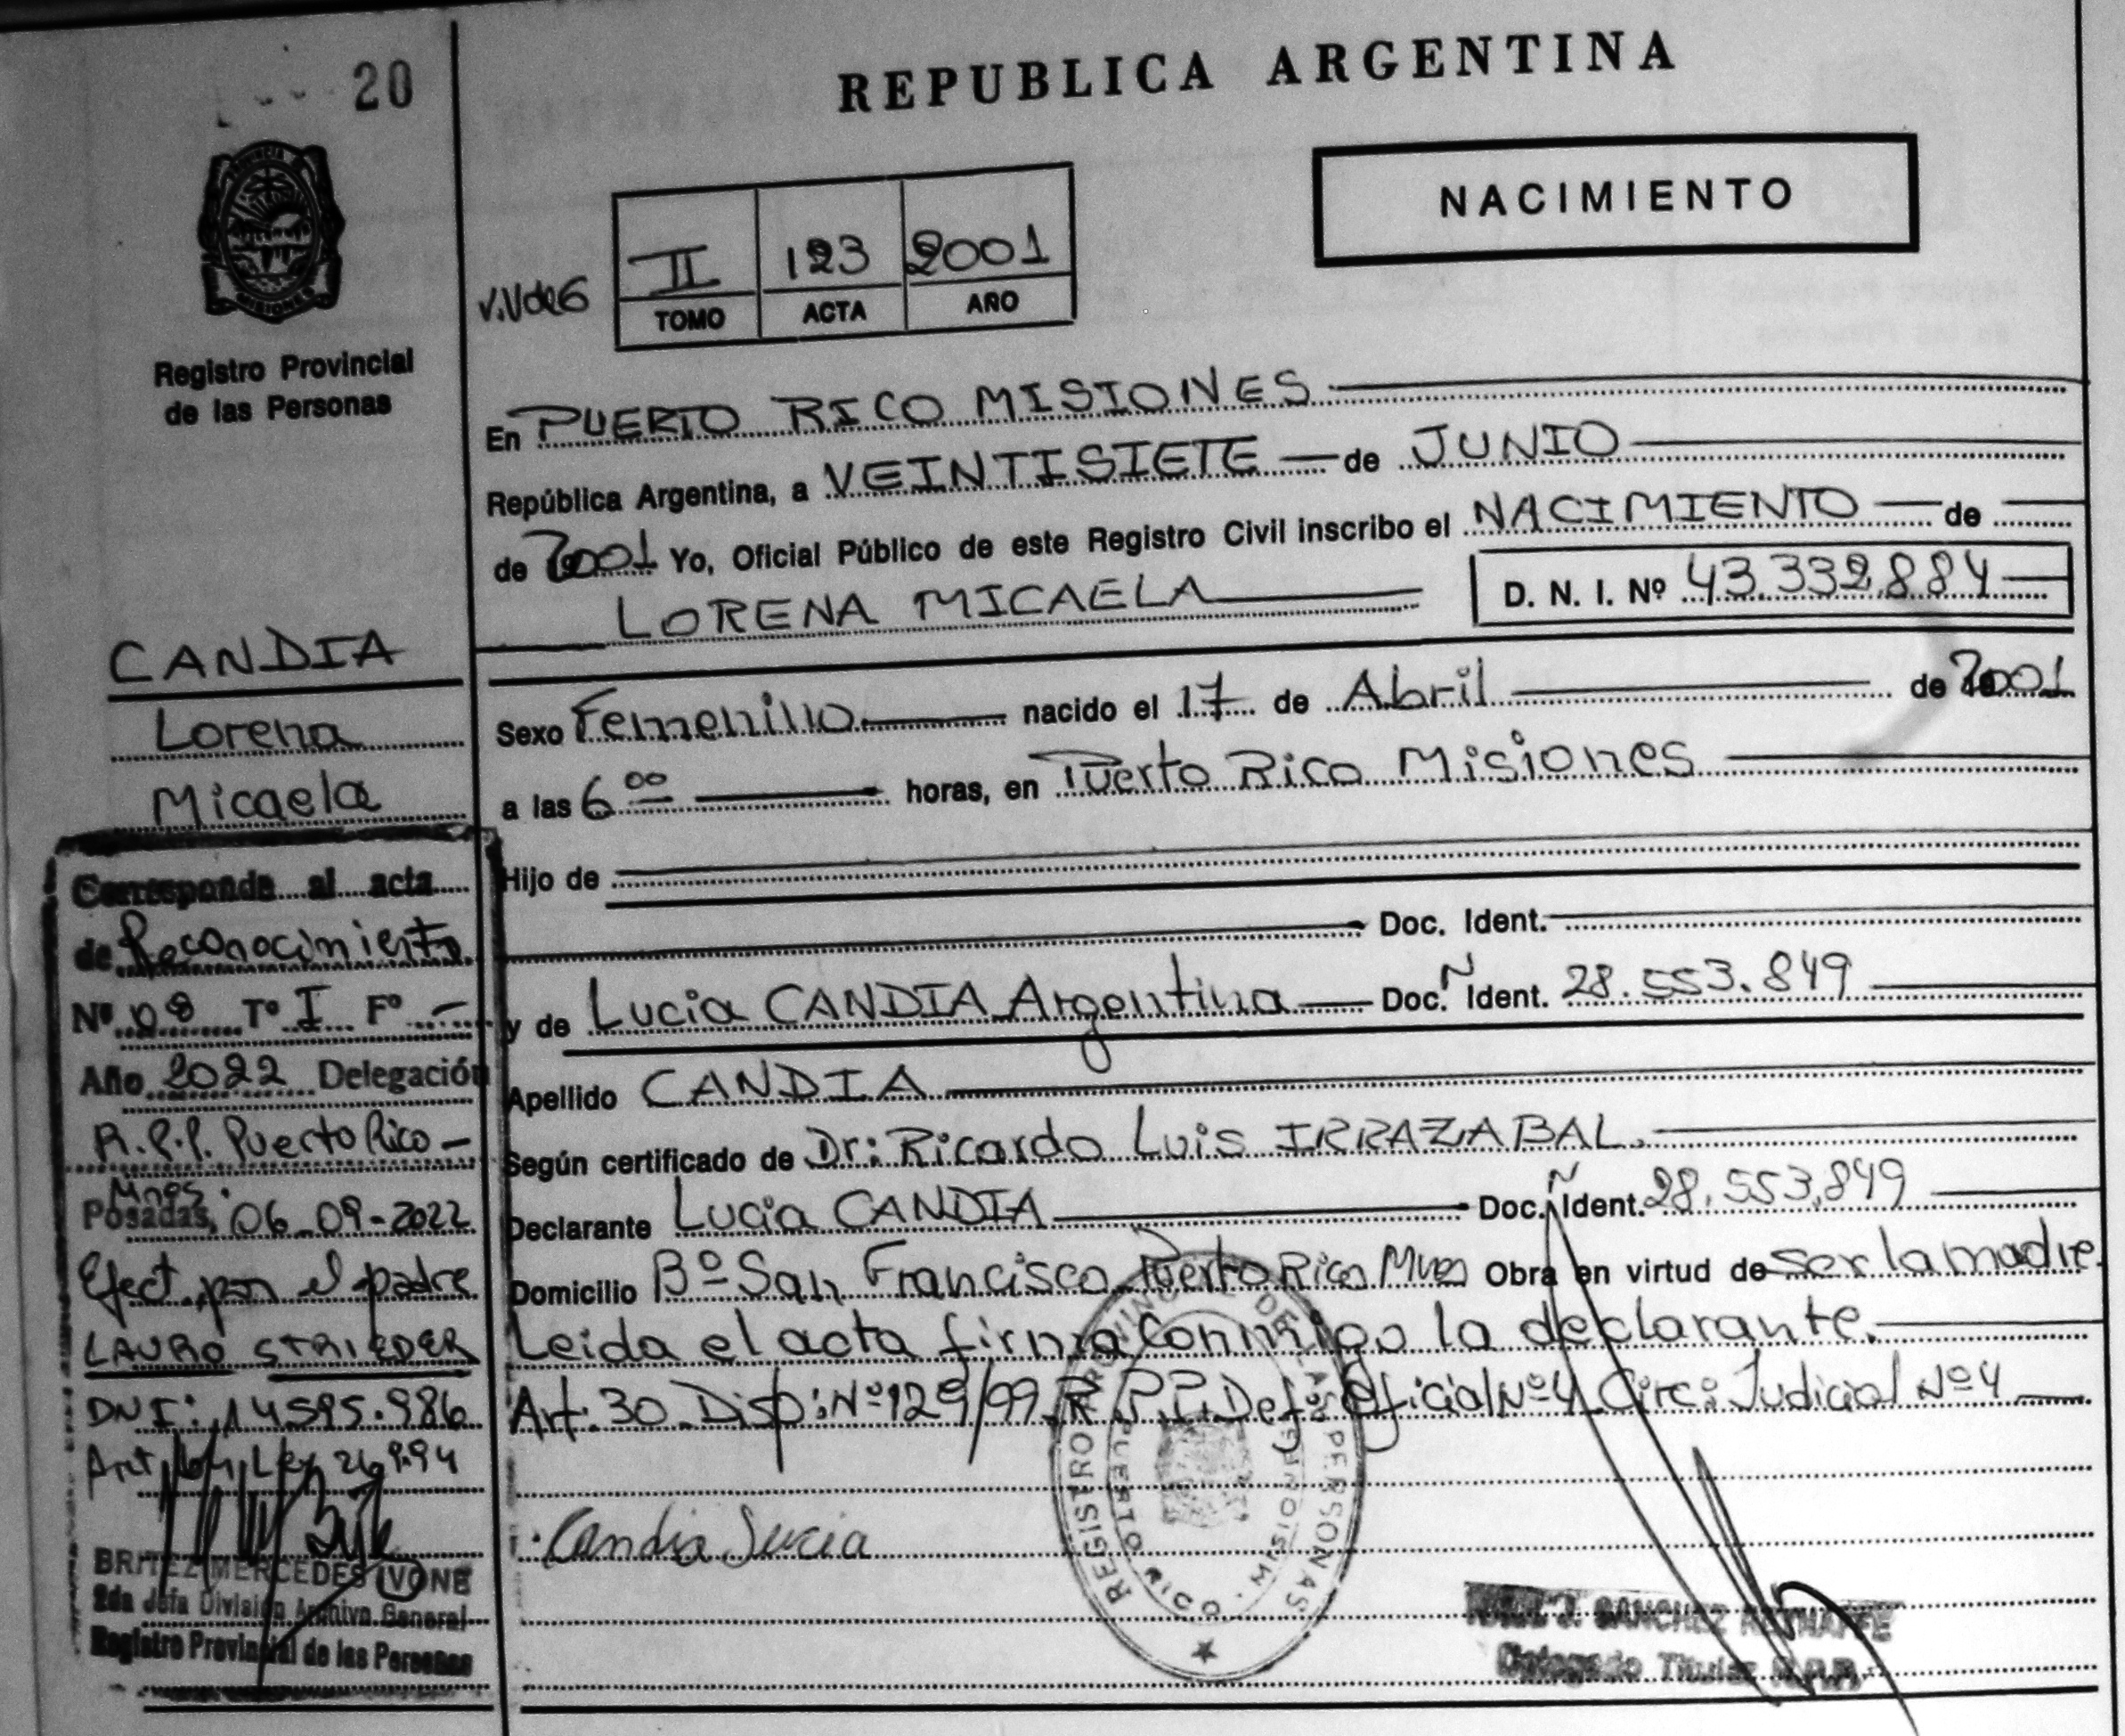 20
REPUBLICA ARGENTINA
NACIMIENTO
II 123 2001
TOMO ACTA AÑO
PROVINCIA
MISIONES
Registro Provincial
de las Personas
En PUERTO RICO MISIONES
República Argentina, a VEINTISIETE de JUNIO
de 2001 Yo, Oficial Público de este Registro Civil inscribo el NACIMIENTO de
LORENA MICAELA D. N. I. Nº 43.332.884
CANDIA
Lorena
Micaela
Sexo Femenino nacido el 17 de Abril de 2001
a las 6 00 horas, en Puerto Rico Misiones
Hijo de
Doc. Ident.
y de Lucia CANDIA Argentina Doc. Ñ Ident. 28.553.849
Apellido CANDIA
Según certificado de Dr: Ricardo Luis IRRAZABAL.
Declarante Lucia CANDIA Doc. Ñ Ident. 28.553.849
Domicilio Bº San Francisco Puerto Rico Mnes Obra en virtud de ser la madre.
Leida el acta firma conmigo la declarante.
Art. 30 Disp: Nº 129/99 R.P.P. Def: Oficial Nº 4 Circ: Judicial Nº 4
Candia Lucia
Corresponde al acta
de Reconocimiento
Nº 08 Tº I Fº -
Año 2022 Delegación
R.P.P. Puerto Rico -
Mnes.
Posadas, 06-09-2022
Efect. por el padre
LAURO STRIEDER
DNI: 14.595.986
Art. Ley 26.994
BRITEZ MERCEDES IVONE
2da Jefa División Archivo General
Registro Provincial de las Personas
REGISTRO PROVINCIAL DE LAS PERSONAS
PUERTO RICO MISIONES
J. SANCHEZ
Delegado Titular